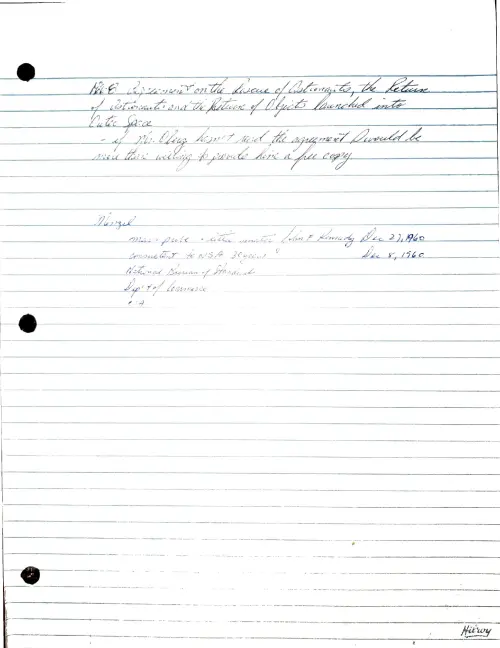 Agreement on the Rescue of Astronauts, the Return
of Astronauts and the Return of Objects launched into
Outer Space
- if Mr. Oberg hasn't read the agreement I would be
more than willing to provide him a free copy.
Menzel
letter senator John F Kennedy Dec 27, 1960
consultant to NSA 30 years " Dec 8, 1960
National Bureau of Standards
Dep't of Commerce